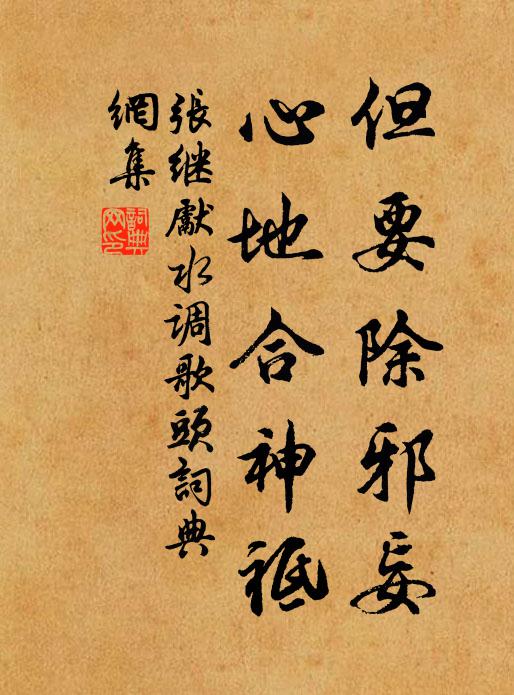 但要除邪妄
心地合神祗
張继獻水调歌頭詞典
網集
詞典
网印